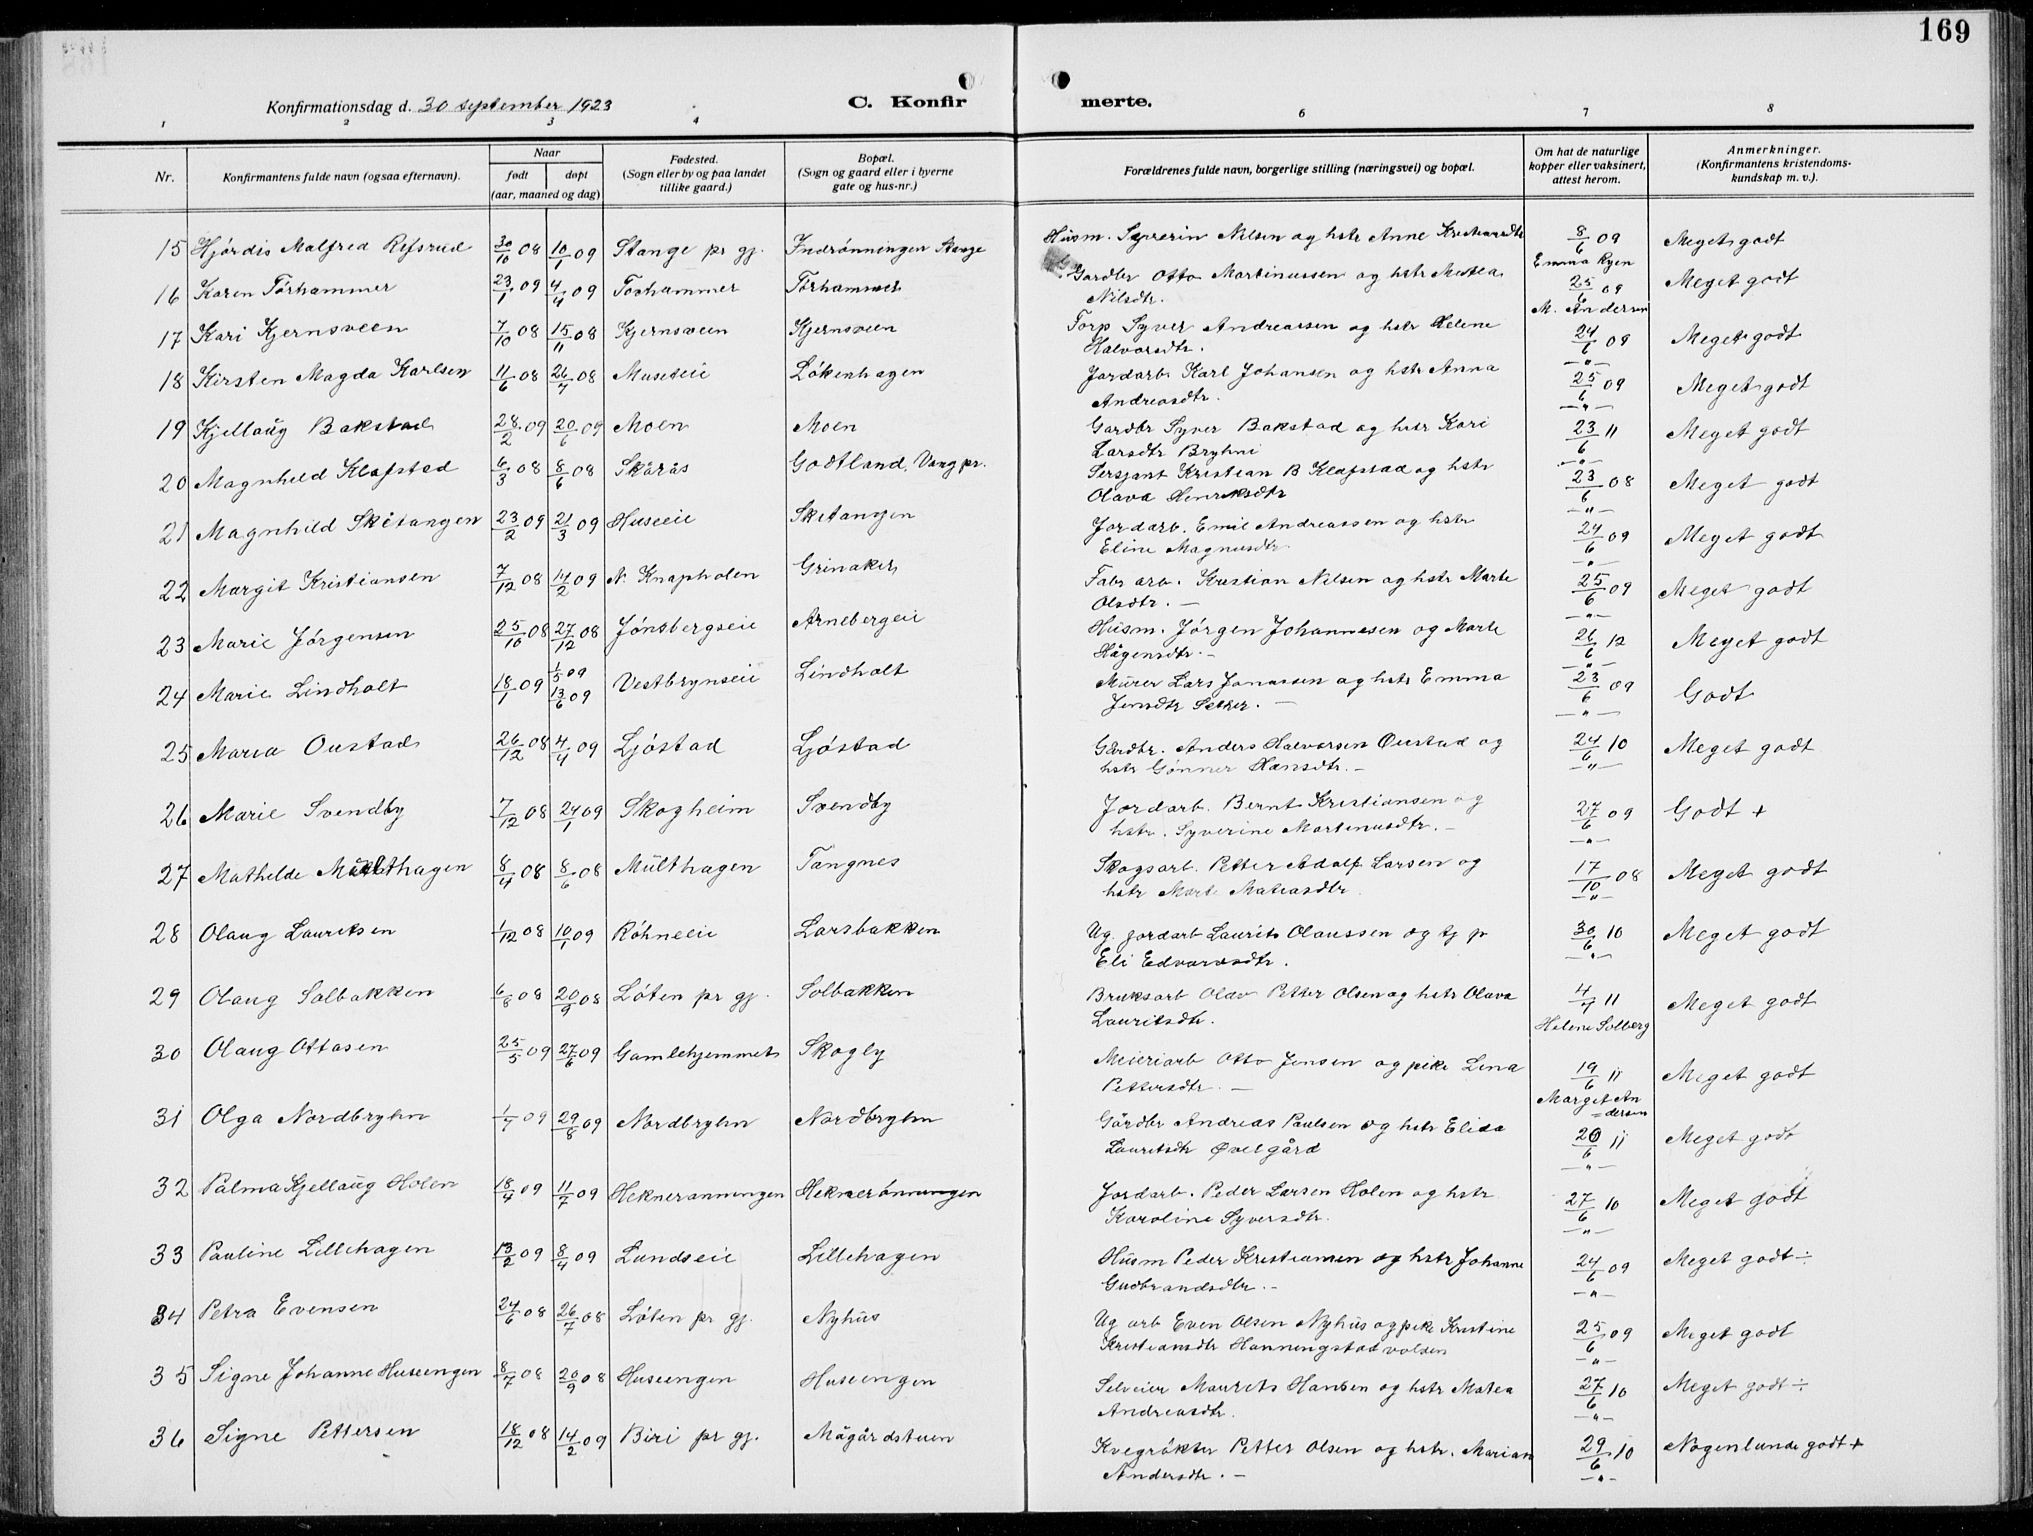 169
Konfirmationsdag d. 30 september 1923
C. Konfirmerte.
1 2 3 4 6 7 8
Nr.
Konfirmantens fulde navn (ogsaa efternavn).
Naar
født døpt
(aar, maaned og dag)
Fødested.
(Sogn eller by og paa landet
tillike gaard.)
Bopæl.
(Sogn og gaard eller i byerne
gate og hus-nr.)
Forældrenes fulde navn, borgerlige stilling (næringsvei) og bopæl.
Om hat de naturlige
kopper eller vaksinert,
attest herom.
Anmerkninger.
(Konfirmantens kristendoms-
kundskap m. v.).
15 Hjørdis Malfred Refsrud 30/10 08 10/1 09 Stange pr gj. Indrønningen Stange Husm. Syverin Nilsen og hstr Anne 8/6 09 Meget godt
Emma Ryen
16 Karen Tørhammer 23/1 09 4/4 09 Torhammer Tørhammer Gardbr Otto Martinussen og hstr Matea 25/6 09 Meget godt
Nilsdtr. M. Andersen
17 Kari Kjernsveen 7/10 08 15/11 08 Kjernsveen Kjernsveen Torp Syver Andreassen og hstr Helene 24/6 09 Meget godt
Halvorsdtr. —"—
18 Kirsten Magda Karlsen 11/6 08 26/7 08 Museteie Løkenhagen Jordarb. Karl Johansen og hstr Anna 25/6 09 Meget godt
Andreasdtr. —"—
19 Kjellaug Bakstad 28/2 09 20/6 09 Moen Moen Gardbr Syver Bakstad og hstr Kari 23/6 11 Meget godt
Larsdtr Bryhni —"—
20 Magnhild Klafstad 6/3 08 8/6 08 Skårås Godtland, Vang pr. Sersjant Kristian B Klafstad og hstr 23/6 08 Meget godt
Olava Henriksdtr —"—
21 Magnhild Sketangen 23/2 09 21/3 09 Huseeie Sketangen Jordarb. Emil Andreassen og hstr 24/6 09 Meget godt
Eline Magnusdtr. —"—
22 Margit Kristiansen 7/12 08 14/2 09 N. Knapholen Grinaker Fabr arb. Kristian Nilsen og hstr Marte 25/6 09 Meget godt
Olsdtr. — —"—
23 Marie Jørgensen 25/10 08 27/12 08 Jønsbergseie Arnebergeie Husm. Jørgen Johannesen og Marte 26/6 12 Meget godt
Hågensdtr. — —"—
24 Marie Lindholt 18/1 09 1/5 09 13/6 09 Vestbrynseie Lindholt Murer Lars Jonassen og hstr Emma 23/6 09 Godt
Jensdtr Sether. — —"—
25 Maria Oustad 26/12 08 4/4 09 Ljøstad Ljøstad Gårdbr. Anders Halvorsen Oustad og 24/6 10 Meget godt
hstr Gønner Hansdtr. — —"—
26 Marie Svendby 7/12 08 24/1 09 Skogheim Svendby Jordarb. Bernt Kristiansen og 27/6 09 Godt +
hstr. Syverine Martinusdtr. — —"—
27 Mathilde Multhagen 8/4 08 8/6 08 Multhagen Tangnes Skogsarb. Petter Adolf Larsen og 17/10 08 Meget godt
hstr Marte Matiasdtr. —"—
28 Olaug Lauritsen 1/12 08 10/1 09 Røhneeie Larsbakken Ug. jordarb Laurits Olaussen og tj p 30/6 10 Meget godt
Eli Edvardsdtr. —"—
29 Olaug Solbakken 6/8 08 20/9 08 Løten pr gj. Solbakken Bruksarb Olav Petter Olsen og hstr Olava 4/7 11 Meget godt
Lauritsdtr. Helene Solberg
30 Olaug Ottosen 25/5 09 27/6 09 Gamlehjemmet Skogly Meieriarb Otto Jensen og pike Lina 19/6 11 Meget godt
Pettersdtr. — Margit An
=dersen
31 Olga Nordbryhn 1/7 09 29/8 09 Nordbryhn Nordbryhn Gårdbr Andreas Paulsen og hstr Elida 20/6 11 Meget godt
Lauritsdtr Øvergård —"—
32 Palma Kjellaug Holen 18/4 09 11/7 09 Hekneranningen Heknerønningen Jordarb. Peder Larsen Holen og hstr 27/6 10 Meget godt
Karoline Syversdtr. —"—
33 Pauline Lillehagen 13/2 09 8/4 09 Lundseie Lillehagen Husm Peder Kristiansen og hstr Johanne 24/6 09 Meget godt ÷
Gudbrandsdtr. — —"—
34 Petra Evensen 24/6 08 26/7 08 Løten pr gj. Nyhus Ug arb Even Olsen Nyhus og pike Kristine 25/6 09 Meget godt
Kristiansdtr Hanningstadvolden —"—
35 Signe Johanne Huseengen 8/7 08 20/9 08 Huseengen Huseengen Selveier Maurits Hansen og hstr Matea 27/6 10 Meget godt ÷
Andreasdtr. —"—
36 Signe Pettersen 18/12 08 14/2 09 Biri pr gj. Mågårdstuen Kvegrøkter Petter Olsen og hstr. Marian 29/6 10 Nogenlunde godt +
Andersdtr. — —"—